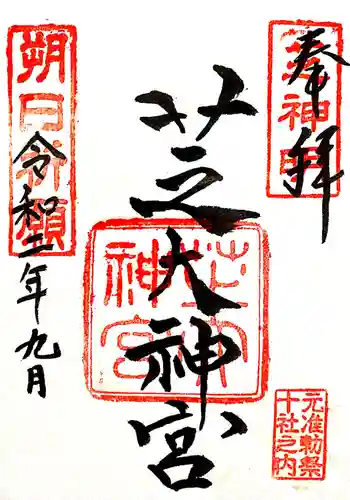 奉拝
芝神明
芝大神宮
芝大神宮
元准勅祭
十社之内
朔日祈願
令和二年九月